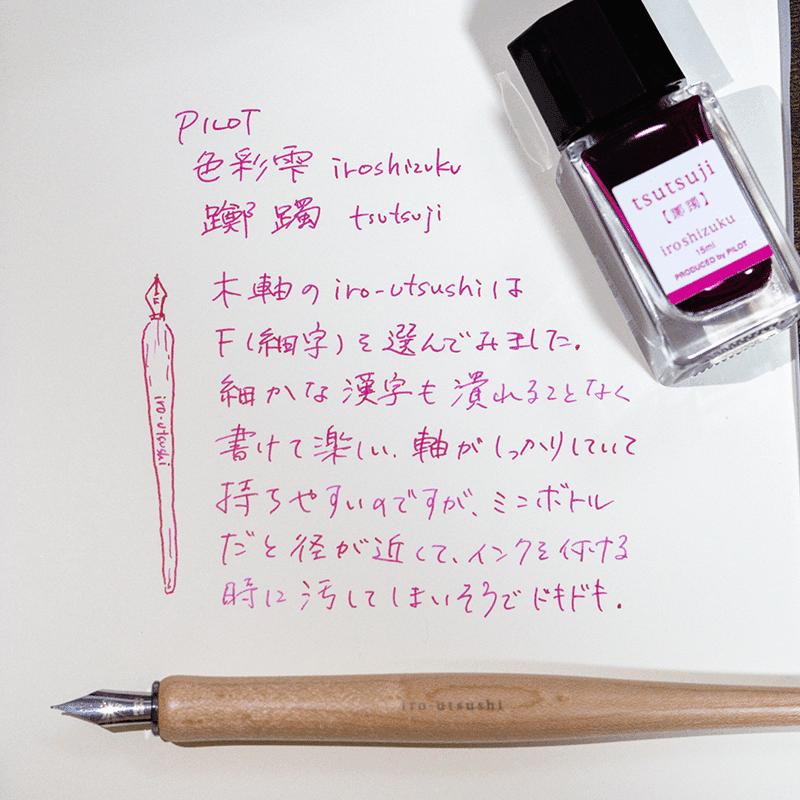 PILOT
色彩雫 iroshizuku
躑躅 tsutsuji
木軸のiro-utsushiは
F(細字)を選んでみました。
細かな漢字も潰れることなく
書けて楽しい、軸がしっかりしていて
持ちやすいのですが、ミニボトル
だと径が近くて、インクを付ける
時に汚してしまいそうでドキドキ。
iro-utsushi
tsutsuji
【躑躅】
iroshizuku
15ml
PRODUCED by PILOT
iro-utsushi